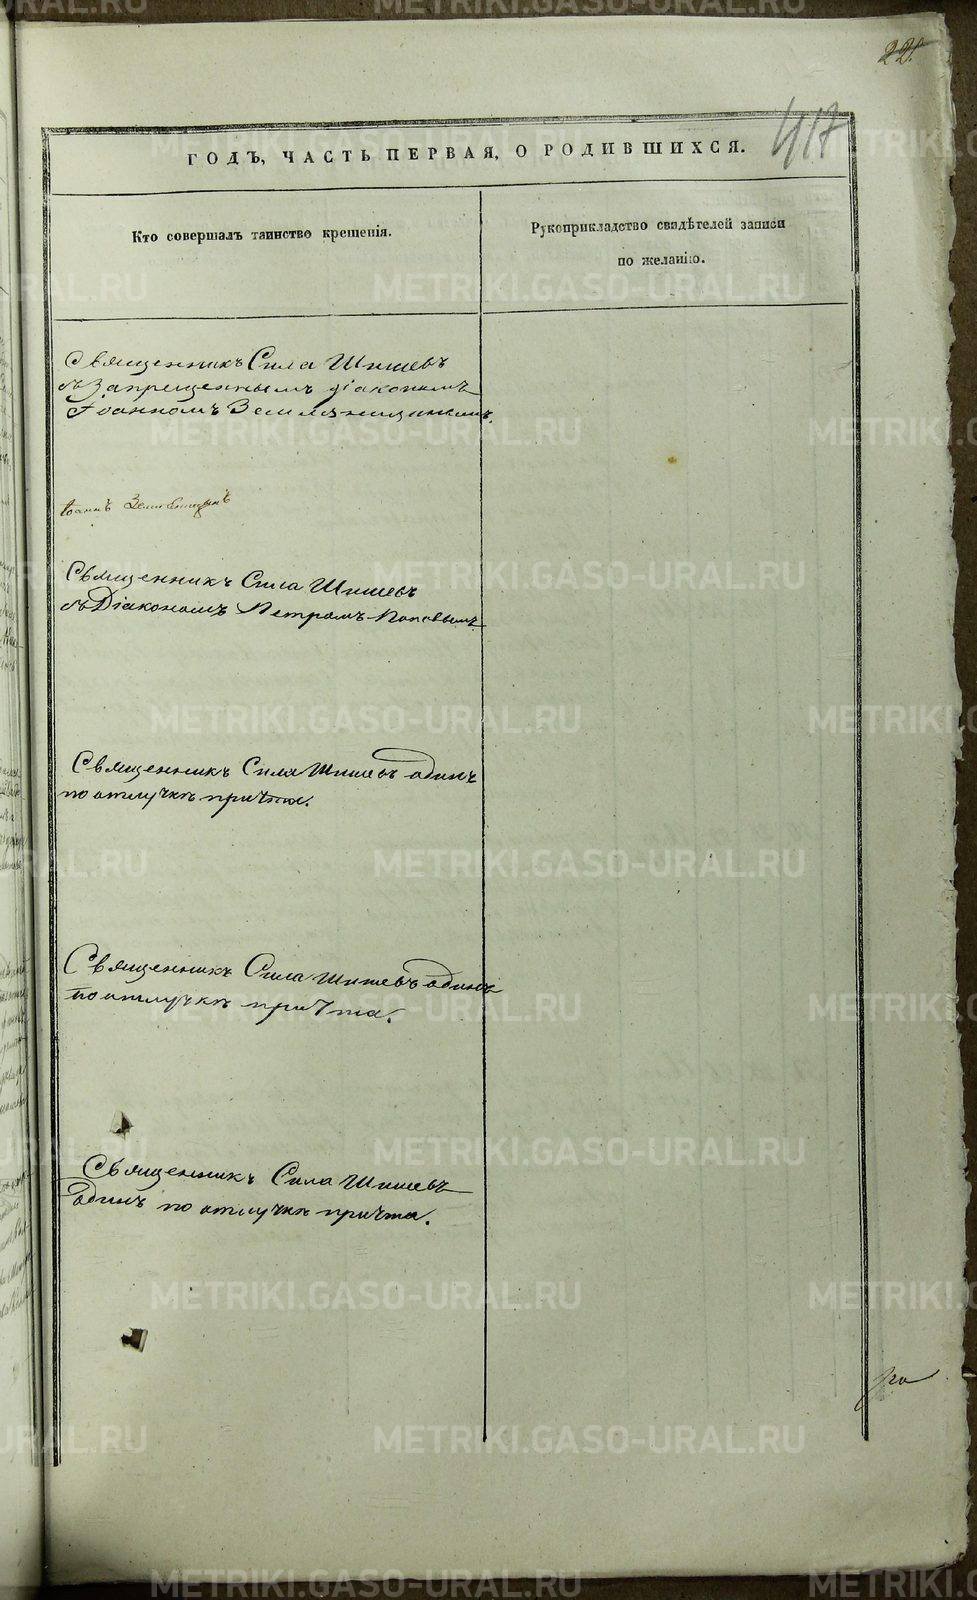 22.
417
ГОДЪ, ЧАСТЬ ПЕРВАЯ, О РОДИВШИХСЯ.
Кто совершалъ таинство крещенія.
Рукоприкладство свидѣтелей записи
по желанію.
Священникъ Сила Шишевъ
съ Запрещеннымъ діакономъ
Іоанномъ Земляницинымъ.
Іоаннъ Земляницынъ
Священникъ Сила Шишевъ
съ Діакономъ Петромъ Поповымъ
Священникъ Сила Шишевъ одинъ
по отлучкѣ причта.
Священникъ Сила Шишевъ одинъ
по отлучкѣ причта.
Священникъ Сила Шишевъ
одинъ по отлучкѣ причта.
METRIKI.GASO-URAL.RU